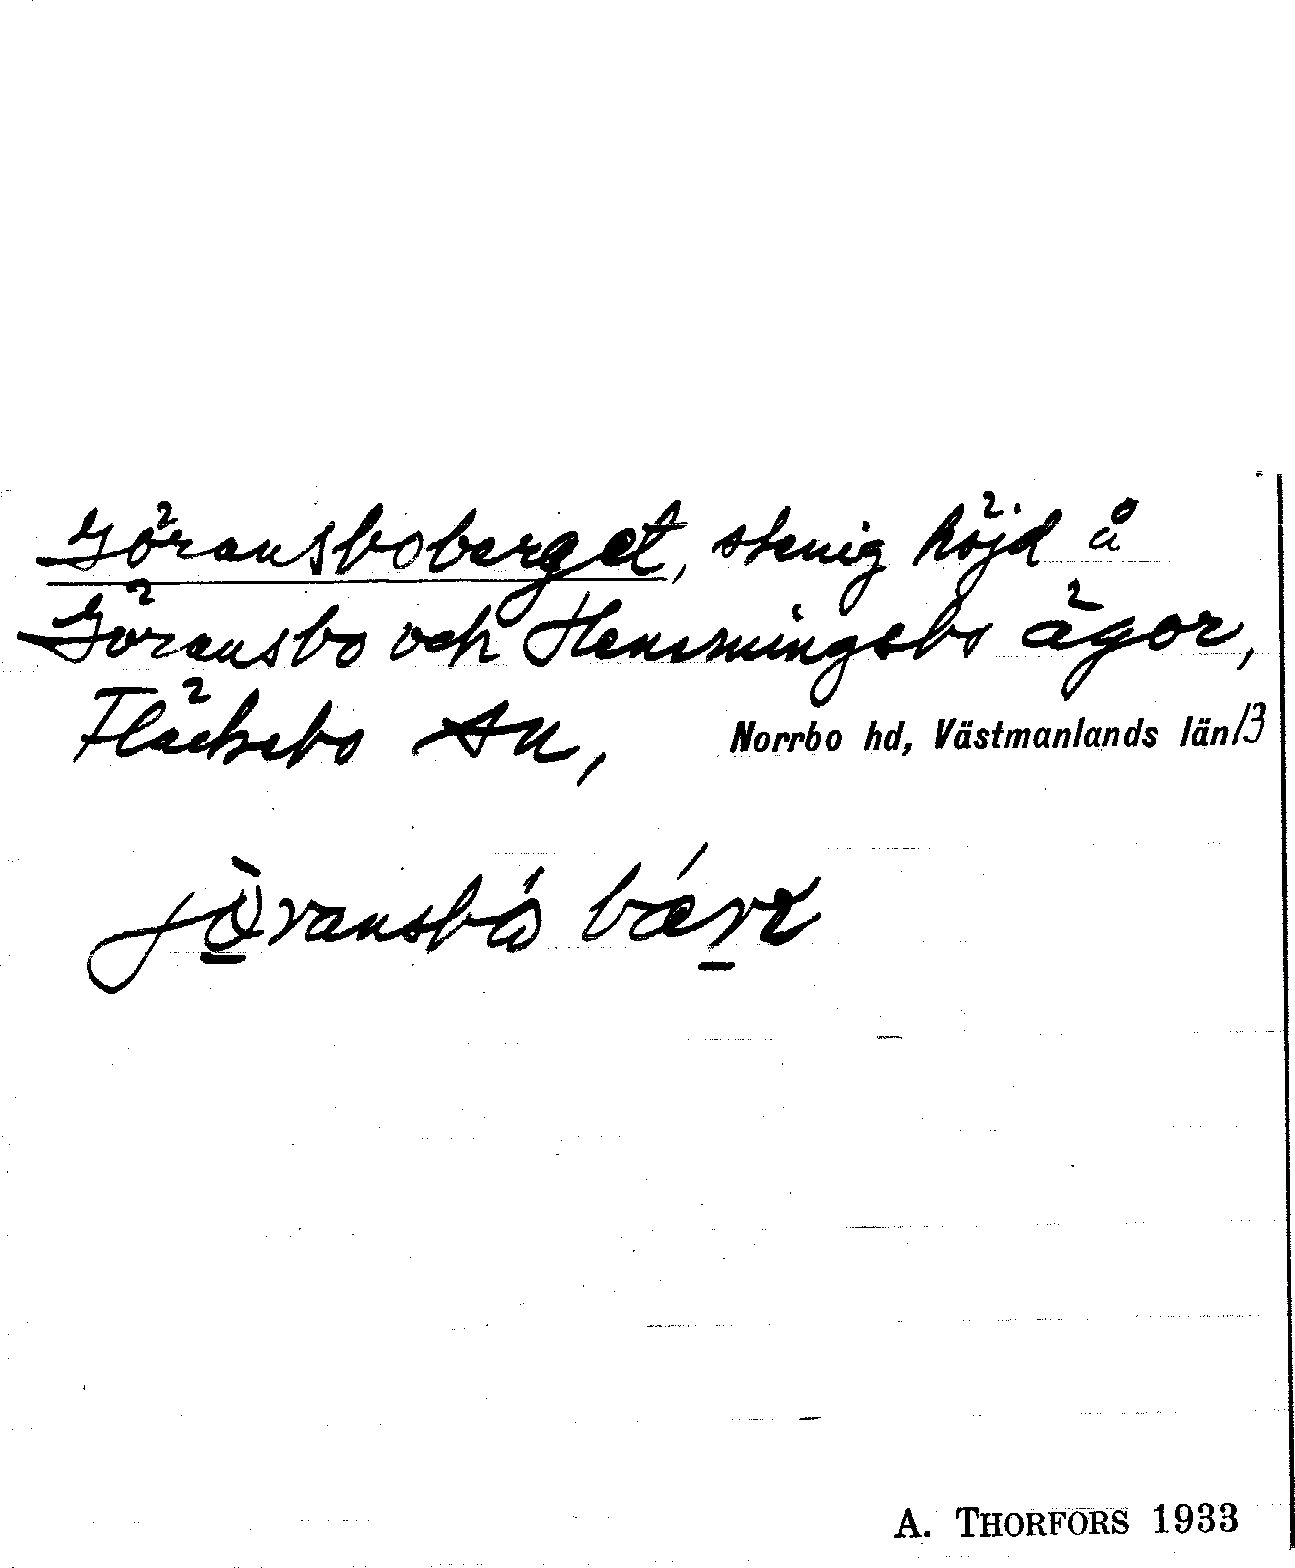 Göransboberget, stenig höjd å
Göransbo och Hemmingsbo ägor,
Fläckebo sn, Norrbo hd, Västmanlands län 13
jö̀ransbó bǽrʒ
A. THORFORS 1933